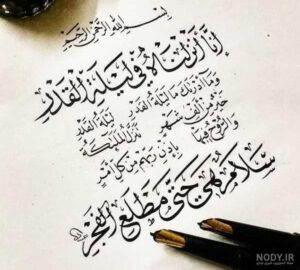 بسم الله الرحمن الرحیم
إنا أنزلناه في ليلة القدر
وما أدراك ما ليلة القدر ليلة القدر
خير من ألف شهر تنزل الملائكة
والروح فيها بإذن ربهم من كل أمر
سلام هي حتى مطلع الفجر
NODY.IR